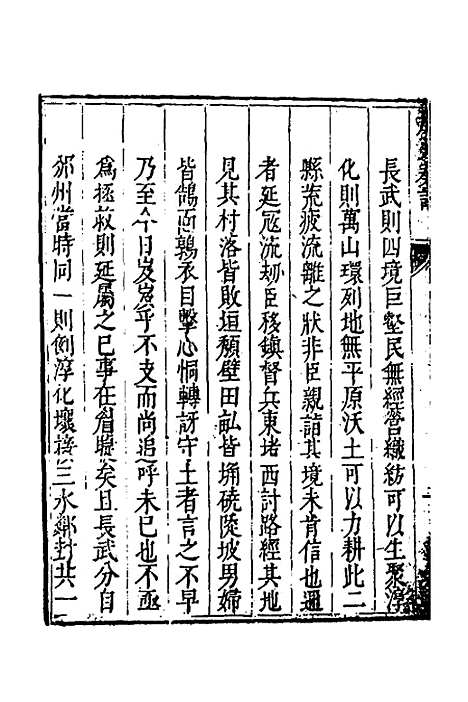 長武則四境巨壑民無經營織紡可以生聚淳
化則萬山環列地無平原沃土可以力耕此二
縣荒疲流離之狀非臣親詣其境未肯信也邇
者延冦流刼臣移鎮督兵東堵西討路經其地
見其村落皆敗垣頽壁田畆皆埆磽陡坡男婦
皆鵠面鶉衣目擊心恫轉訝守土者言之不早
乃至今日岌岌乎不支而尚追呼未已也不亟
爲拯救則延屬之已事在眉睫矣且長武分自
邠州當時同一則例淳化壤接三水鄰封共一